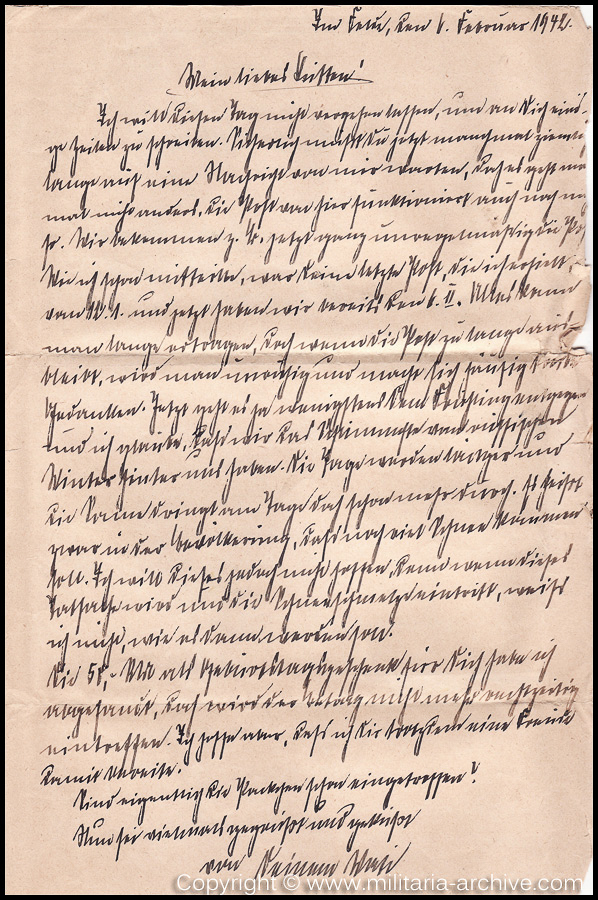 Im Felde, den 6. Februar 1942.
Mein liebes
Ich will diesen Tag nicht vergehen lassen, um an Dich eini-
ge Zeilen zu schreiben. Sicherlich mußt Du jetzt manchmal ziemlich
lange auf eine Nachricht von mir warten, doch es geht
mal nicht anders, die Post von hier funktioniert auch noch
so. Wir bekommen z. B. jetzt ganz unregelmäßig die Po
Wie ich schon mitteilte, war Deine letzte Post, die ich erhielt,
vom 12.1. und jetzt haben wir bereits den 6. II. Alles kann
man lange ertragen, doch wenn die Post zu lange aus-
bleibt, wird man unruhig und macht sich häufig
Gedanken. Jetzt geht es ja wenigstens dem Frühling entgegen
und ich glaube, dass wir das Schlimmste vom russischen
Winter hinter uns haben. Die Tage werden länger und
die Sonne dringt am Tage doch schon mehr durch. Es heißt
zwar in der Bevölkerung, dass noch viel Schnee kommen
soll. Ich will dieses jedoch nicht hoffen, denn wenn dieses
Tatsache wird und die Schneeschmelze eintritt, weiß
ich nicht, wie es dann werden soll.
Die 50,- RM als Geburtstagsgeschenk für Dich habe ich
abgesandt, doch wird der Betrag nicht mehr rechtzeitig
eintreffen. Ich hoffe aber, dass ich Dir trotzdem eine Freude
damit bereite.
Sind eigentlich die Päckchen schon eingetroffen?
Nun sei vielmals gegrüßt und geküßt
von Deinem
Copyright © www.militaria-archive.com